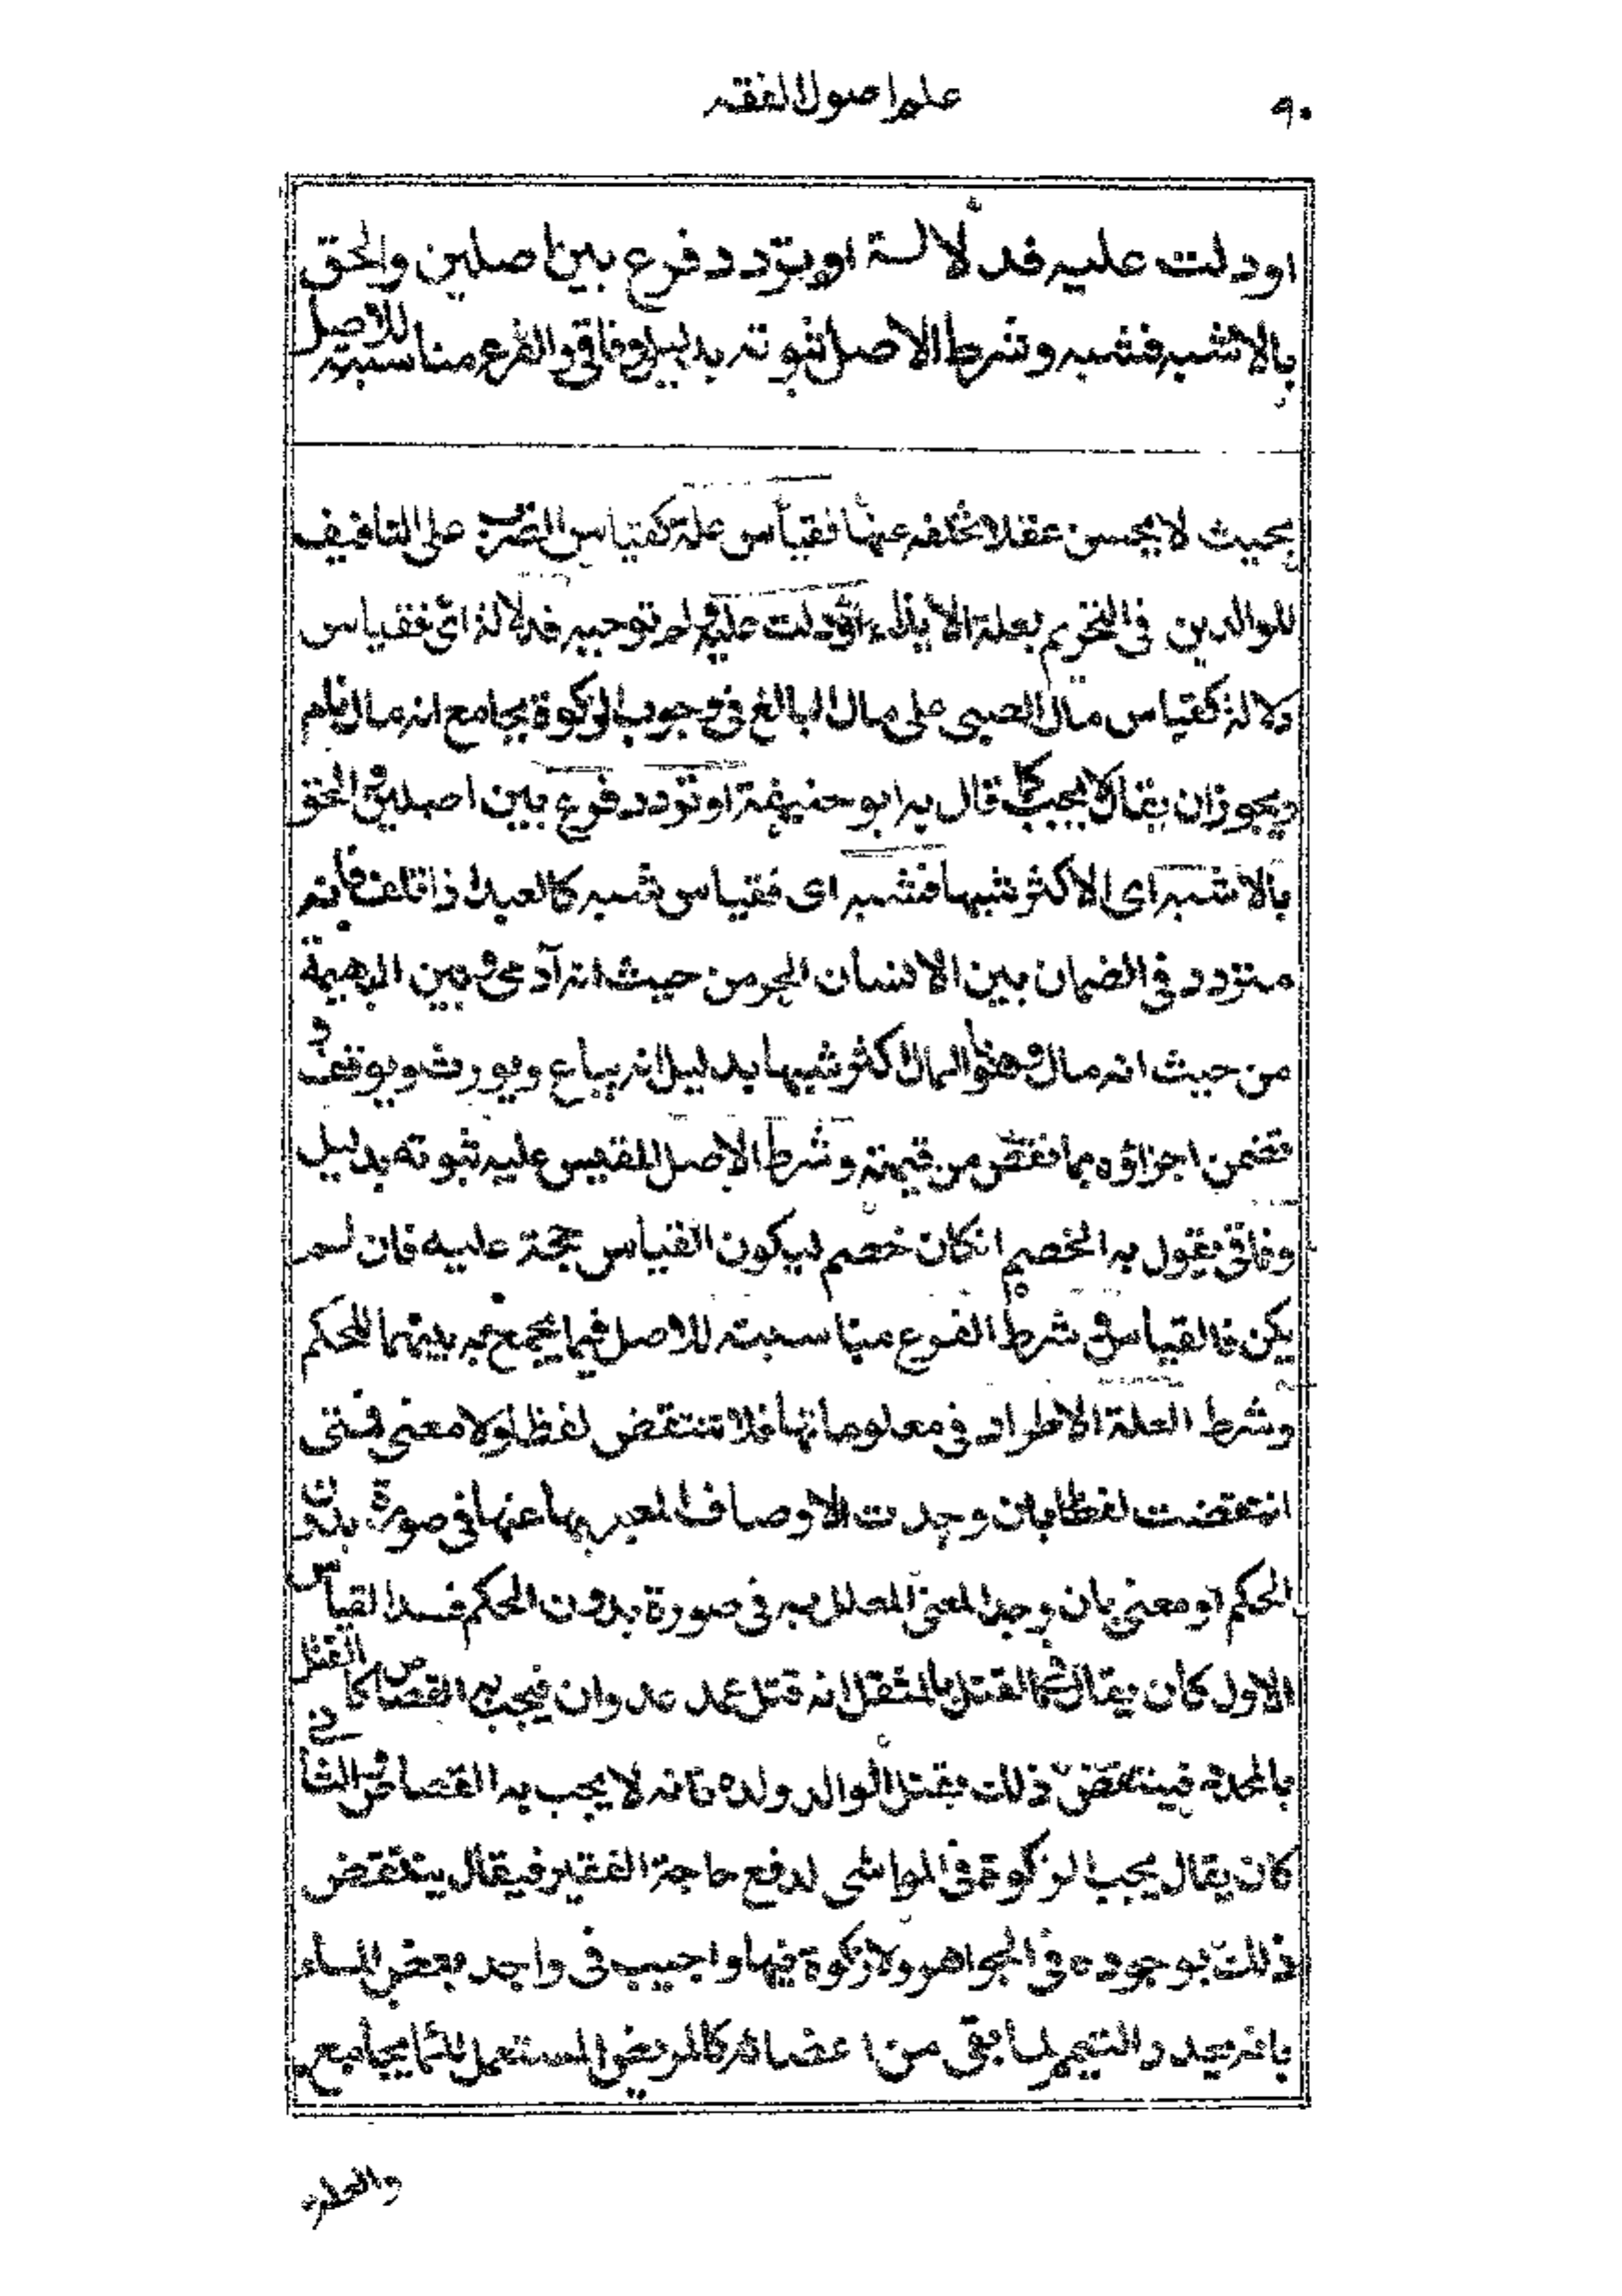 ٩٠
علم اصول الفقه
او دلت عليه فدلالة او تردد فرع بين اصلين والحق
بالاشبه فشبه وشرط الاصل ثبوته بدليل وفاقي والفرع مناسبته للاصل
بحيث لا يحسن عقلا تخلفه عنها فقياس علة كقياس الضرب على التافيف
للوالدين في التحريم بعلة الايذاء او دلت عليه ولم توجبه فدلالة اى فقياس
دلالة كقياس مال الصبي على مال البالغ في وجوب الزكوة بجامع انه مال نام
ويجوز ان يقال لا يجب كما قال به ابو حنيفة او تردد فرع بين اصلين والحق
بالاشبه اى الاكثر شبها فشبه اى فقياس شبه كالعبد اذا تلف فانه
متردد في الضمان بين الانسان الحر من حيث انه آدمى وبين البهيمة
من حيث انه مال وهو بالمال اكثر شبها بدليل انه يباع ويورث ويوقف و
تضمن اجزاؤه بما نقص من قيمته وشرط الاصل المقيس عليه ثبوته بدليل
وفاقي يقول به الخصم انكان خصم ليكون القياس حجة عليه فان لم
يكن فالقياس و شرط الفرع مناسبته للاصل فيما يجمع به بينهما للحكم
وشرط العلة الاطراد في معلوماتها فلا تنتقض لفظا ولا معنى فمتى
انتقضت لفظا بان وجدت الاوصاف المعبر بها عنها في صورة بدون
الحكم او معنى بان وجد المعنى المعلل به في صورة بدون الحكم فسد القياس
الاول كان يقال في القتل بالمثقل انه قتل عمد عدوان فيجب به القصاص كالقتل
بالمحدد فينتقض ذلك بقتل الوالد ولده فانه لا يجب به القصاص والثاني
كان يقال يجب الزكوة في المواشى لدفع حاجة الفقير فيقال ينتقض
ذلك بوجوده في الجواهر ولا زكوة فيها واجيب في واجد بعض الماء
بانه يعد والتيمم لما بقى من اعضائه كالمريض المستعمل للماء بجامع